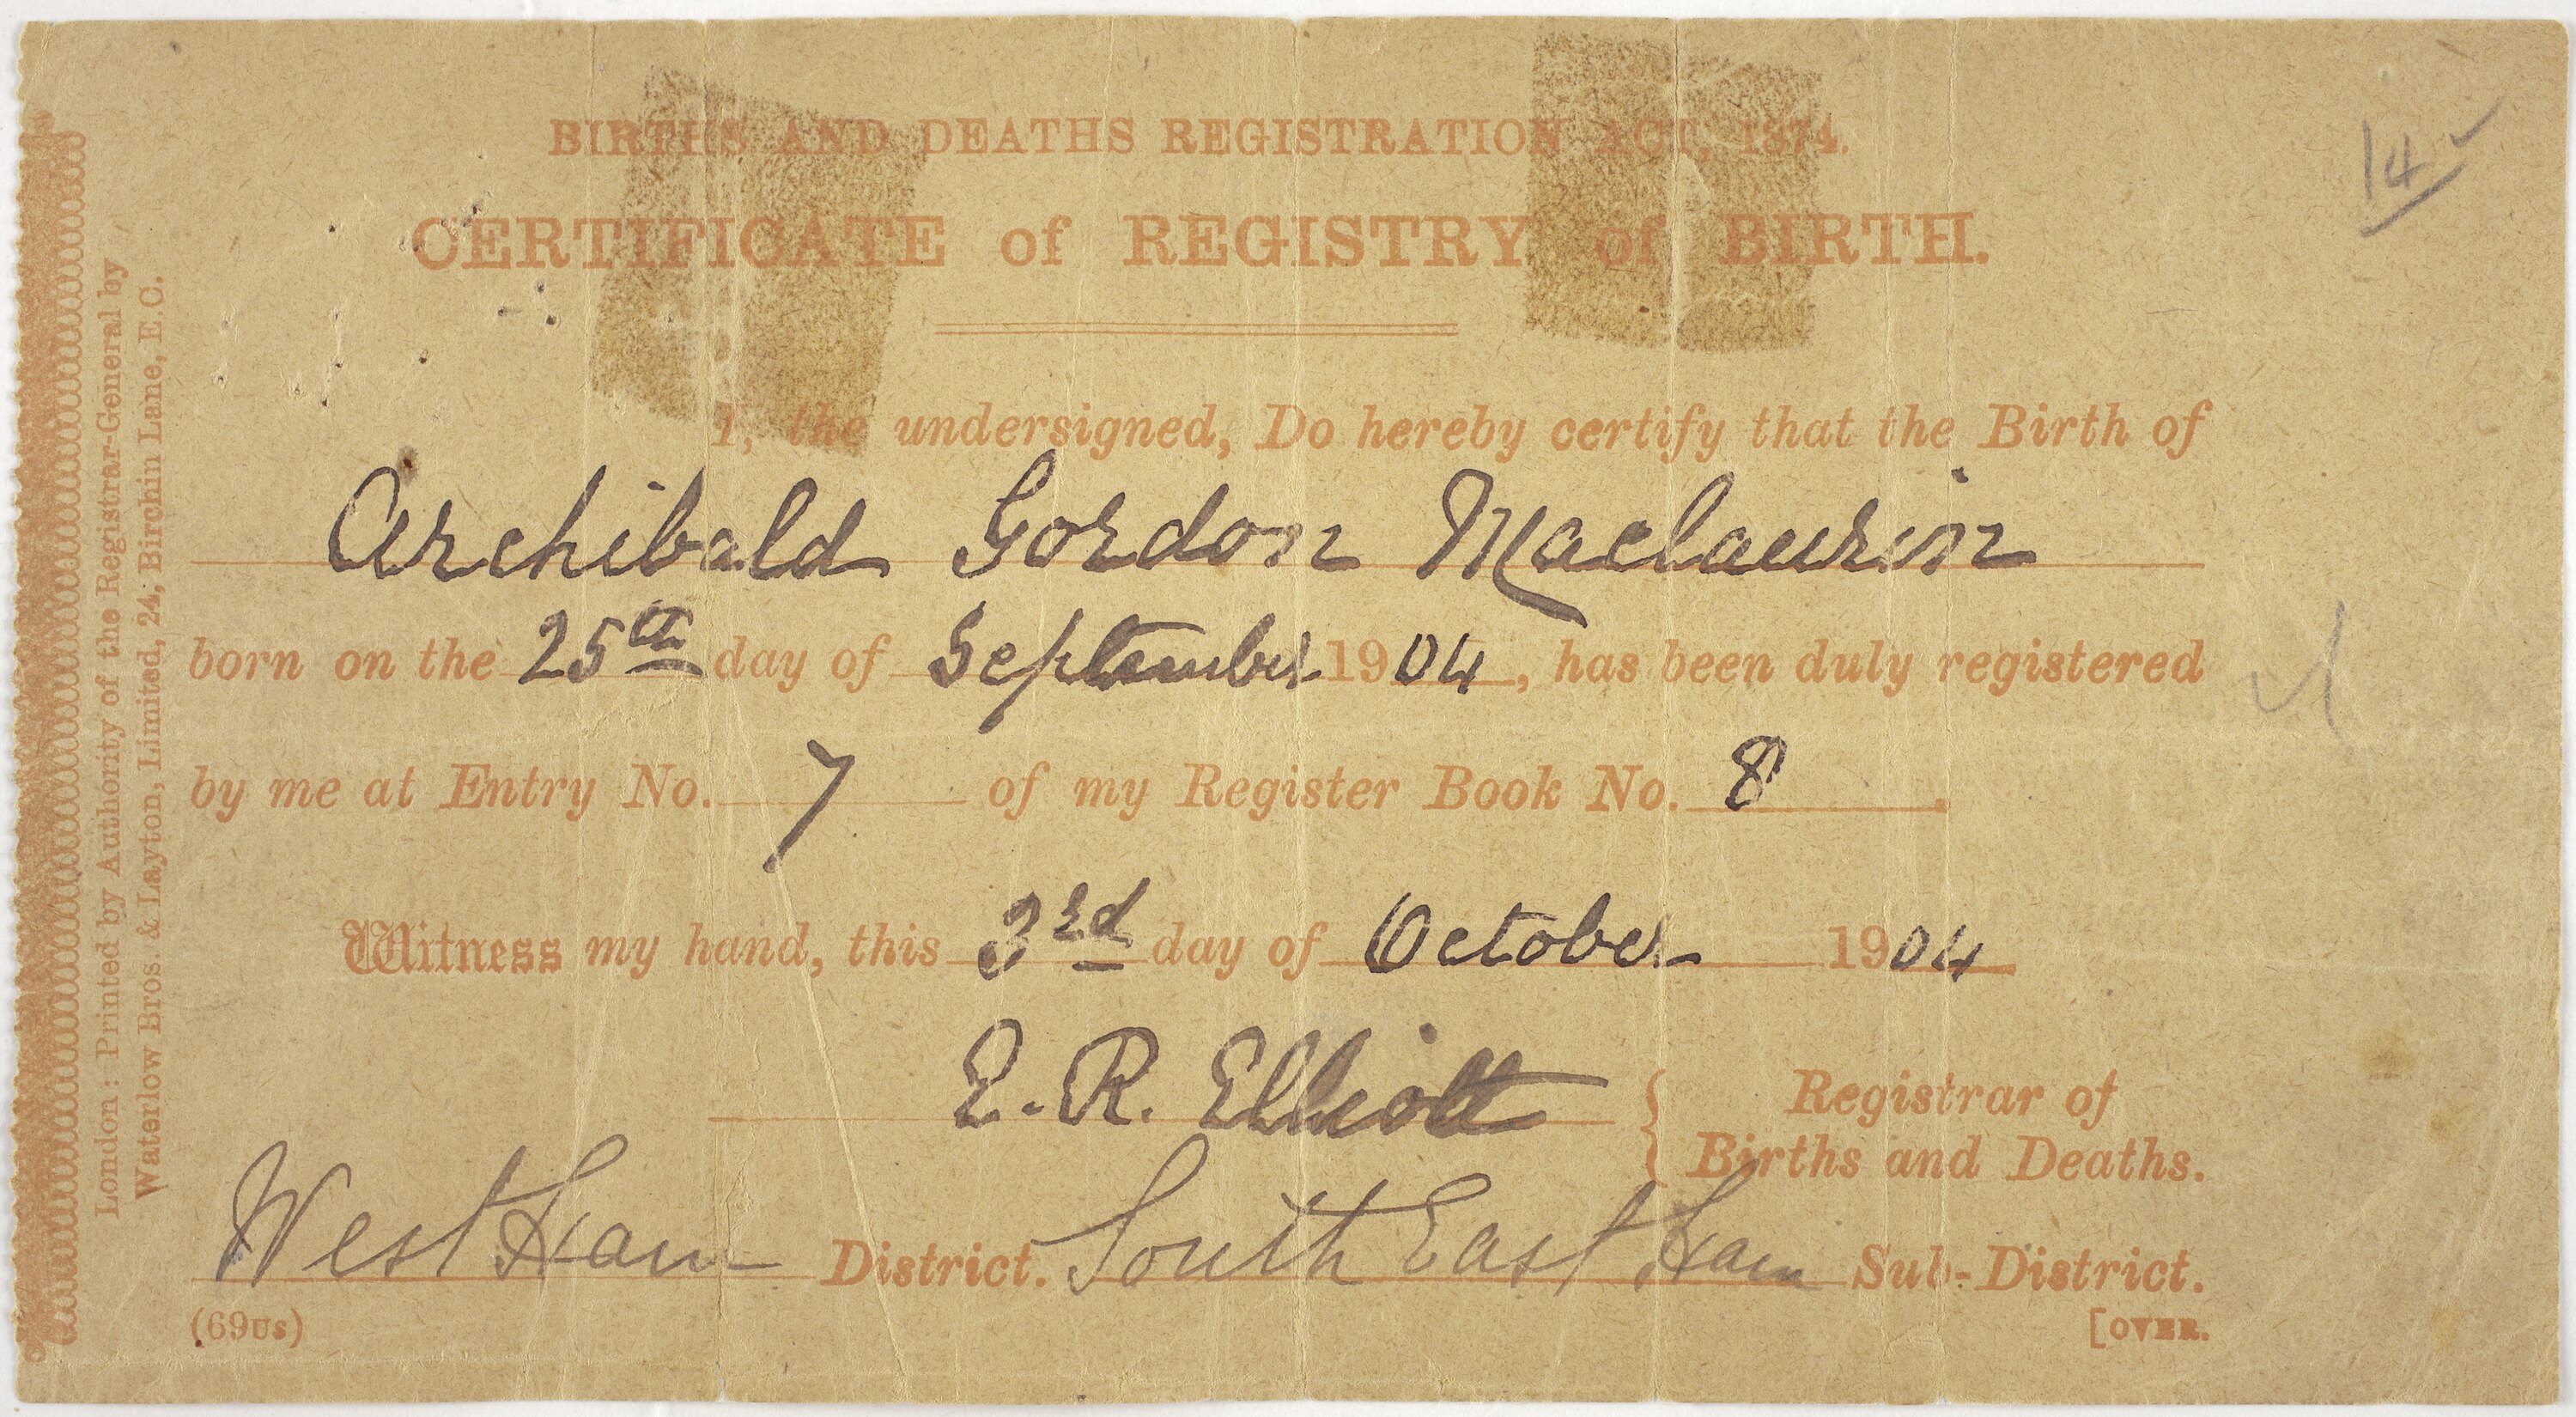 BIRTHS AND DEATHS REGISTRATION ACT, 1874.
14
CERTIFICATE of REGISTRY of BIRTH.
I, the undersigned, Do hereby certify that the Birth of
Archibald Gordon Maclaurin
born on the 25th day of September 1904, has been duly registered
by me at Entry No. 7 of my Register Book No. 8.
Witness my hand, this 3rd day of October 1904
E. R. Elliott { Registrar of
Births and Deaths.
West Ham District. South East Ham Sub-District.
(69us)
[OVER.
London: Printed by Authority of the Registrar-General by
Waterlow Bros. & Layton, Limited, 24, Birchin Lane, E.C.